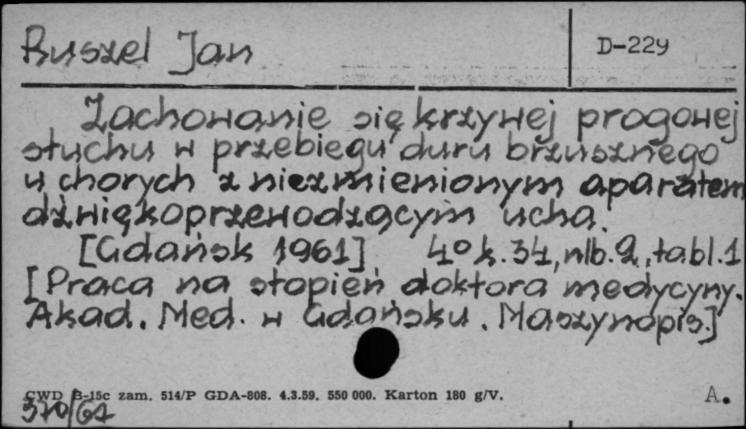 Ruszel Jan
D-229
Zachowanie się krzywej progowej
słuchu w przebiegu duru brzusznego
u chorych z niezmienionym aparatem
dźwiękoprzewodzącym ucha.
[Gdańsk 1961] 4° k. 34, nlb. 2, tabl. 1
[Praca na stopień doktora medycyny.
Akad. Med. w Gdańsku. Maszynopis.]
CWD B-15c zam. 514/P GDA-808. 4.3.59. 550 000. Karton 180 g/V.
A.
370/61